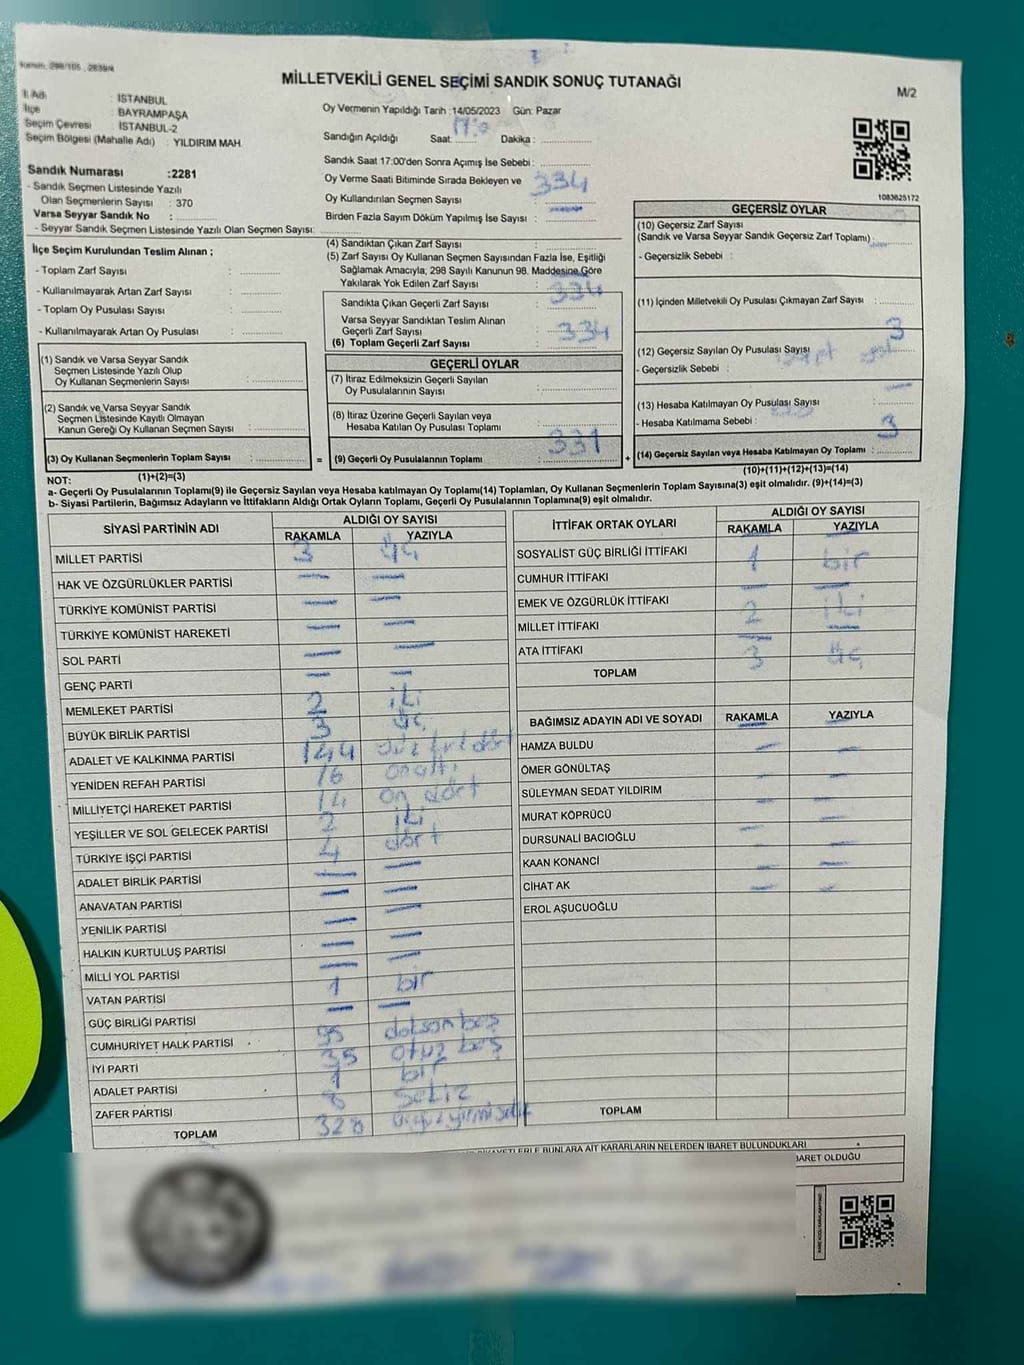 MİLLETVEKİLİ GENEL SEÇİMİ SANDIK SONUÇ TUTANAĞI
M/2
İl Adı : İSTANBUL
İlçe : BAYRAMPAŞA
Seçim Çevresi : İSTANBUL-2
Seçim Bölgesi (Mahalle Adı) : YILDIRIM MAH.
Sandık Numarası :2281
- Sandık Seçmen Listesinde Yazılı
Olan Seçmenlerin Sayısı : 370
Varsa Seyyar Sandık No :
- Seyyar Sandık Seçmen Listesinde Yazılı Olan Seçmen Sayısı:
Oy Vermenin Yapıldığı Tarih :14/05/2023 Gün: Pazar
Sandığın Açıldığı Saat: Dakika :
Sandık Saat 17:00'den Sonra Açılmış İse Sebebi :
Oy Verme Saati Bitiminde Sırada Bekleyen ve
Oy Kullandırılan Seçmen Sayısı : 334
Birden Fazla Sayım Döküm Yapılmış İse Sayısı :
1083625172
İlçe Seçim Kurulundan Teslim Alınan ;
- Toplam Zarf Sayısı :
- Kullanılmayarak Artan Zarf Sayısı :
- Toplam Oy Pusulası Sayısı :
- Kullanılmayarak Artan Oy Pusulası :
(1) Sandık ve Varsa Seyyar Sandık
Seçmen Listesinde Yazılı Olup
Oy Kullanan Seçmenlerin Sayısı :
(2) Sandık ve Varsa Seyyar Sandık
Seçmen Listesinde Kayıtlı Olmayan
Kanun Gereği Oy Kullanan Seçmen Sayısı :
(3) Oy Kullanan Seçmenlerin Toplam Sayısı : =
(4) Sandıktan Çıkan Zarf Sayısı :
(5) Zarf Sayısı Oy Kullanan Seçmen Sayısından Fazla İse, Eşitliği
Sağlamak Amacıyla, 298 Sayılı Kanunun 98. Maddesine Göre
Yakılarak Yok Edilen Zarf Sayısı :
Sandıkta Çıkan Geçerli Zarf Sayısı : 334
Varsa Seyyar Sandıktan Teslim Alınan
Geçerli Zarf Sayısı :
(6) Toplam Geçerli Zarf Sayısı : 334
GEÇERLİ OYLAR
(7) İtiraz Edilmeksizin Geçerli Sayılan
Oy Pusulalarının Sayısı :
(8) İtiraz Üzerine Geçerli Sayılan veya
Hesaba Katılan Oy Pusulası Toplamı :
(9) Geçerli Oy Pusulalarının Toplamı : 331 +
GEÇERSİZ OYLAR
(10) Geçersiz Zarf Sayısı
(Sandık ve Varsa Seyyar Sandık Geçersiz Zarf Toplamı) :
- Geçersizlik Sebebi :
(11) İçinden Milletvekili Oy Pusulası Çıkmayan Zarf Sayısı :
(12) Geçersiz Sayılan Oy Pusulası Sayısı : 3
- Geçersizlik Sebebi :
(13) Hesaba Katılmayan Oy Pusulası Sayısı :
- Hesaba Katılmama Sebebi :
(14) Geçersiz Sayılan veya Hesaba Katılmayan Oy Toplamı : 3
NOT: (1)+(2)=(3) (10)+(11)+(12)+(13)=(14)
a- Geçerli Oy Pusulalarının Toplamı(9) ile Geçersiz Sayılan veya Hesaba katılmayan Oy Toplamı(14) Toplamları, Oy Kullanan Seçmenlerin Toplam Sayısına(3) eşit olmalıdır. (9)+(14)=(3)
b- Siyasi Partilerin, Bağımsız Adayların ve İttifakların Aldığı Ortak Oyların Toplamı, Geçerli Oy Pusulalarının Toplamına(9) eşit olmalıdır.
SİYASİ PARTİNİN ADI ALDIĞI OY SAYISI
RAKAMLA YAZIYLA
MİLLET PARTİSİ 3 üç
HAK VE ÖZGÜRLÜKLER PARTİSİ —
TÜRKİYE KOMÜNİST PARTİSİ —
TÜRKİYE KOMÜNİST HAREKETİ —
SOL PARTİ —
GENÇ PARTİ —
MEMLEKET PARTİSİ 2 iki
BÜYÜK BİRLİK PARTİSİ 3 üç
ADALET VE KALKINMA PARTİSİ 144 yüz kırk dört
YENİDEN REFAH PARTİSİ 16 on altı
MİLLİYETÇİ HAREKET PARTİSİ 14 on dört
YEŞİLLER VE SOL GELECEK PARTİSİ 2 iki
TÜRKİYE İŞÇİ PARTİSİ 4 dört
ADALET BİRLİK PARTİSİ —
ANAVATAN PARTİSİ —
YENİLİK PARTİSİ —
HALKIN KURTULUŞ PARTİSİ —
MİLLİ YOL PARTİSİ —
VATAN PARTİSİ 1 bir
GÜÇ BİRLİĞİ PARTİSİ —
CUMHURİYET HALK PARTİSİ 95 doksan beş
İYİ PARTİ 35 otuz beş
ADALET PARTİSİ 1 bir
ZAFER PARTİSİ 8 sekiz
TOPLAM 328
İTTİFAK ORTAK OYLARI ALDIĞI OY SAYISI
RAKAMLA YAZIYLA
SOSYALİST GÜÇ BİRLİĞİ İTTİFAKI 1 bir
CUMHUR İTTİFAKI —
EMEK VE ÖZGÜRLÜK İTTİFAKI
MİLLET İTTİFAKI 2 iki
ATA İTTİFAKI —
TOPLAM 3 üç
BAĞIMSIZ ADAYIN ADI VE SOYADI RAKAMLA YAZIYLA
HAMZA BULDU
ÖMER GÖNÜLTAŞ
SÜLEYMAN SEDAT YILDIRIM
MURAT KÖPRÜCÜ
DURSUNALİ BACIOĞLU
KAAN KONANCİ
CİHAT AK
EROL AŞUCUOĞLU
TOPLAM
BUNLARA AİT KARARLARIN NELERDEN İBARET BULUNDUKLARI
İBARET OLDUĞU